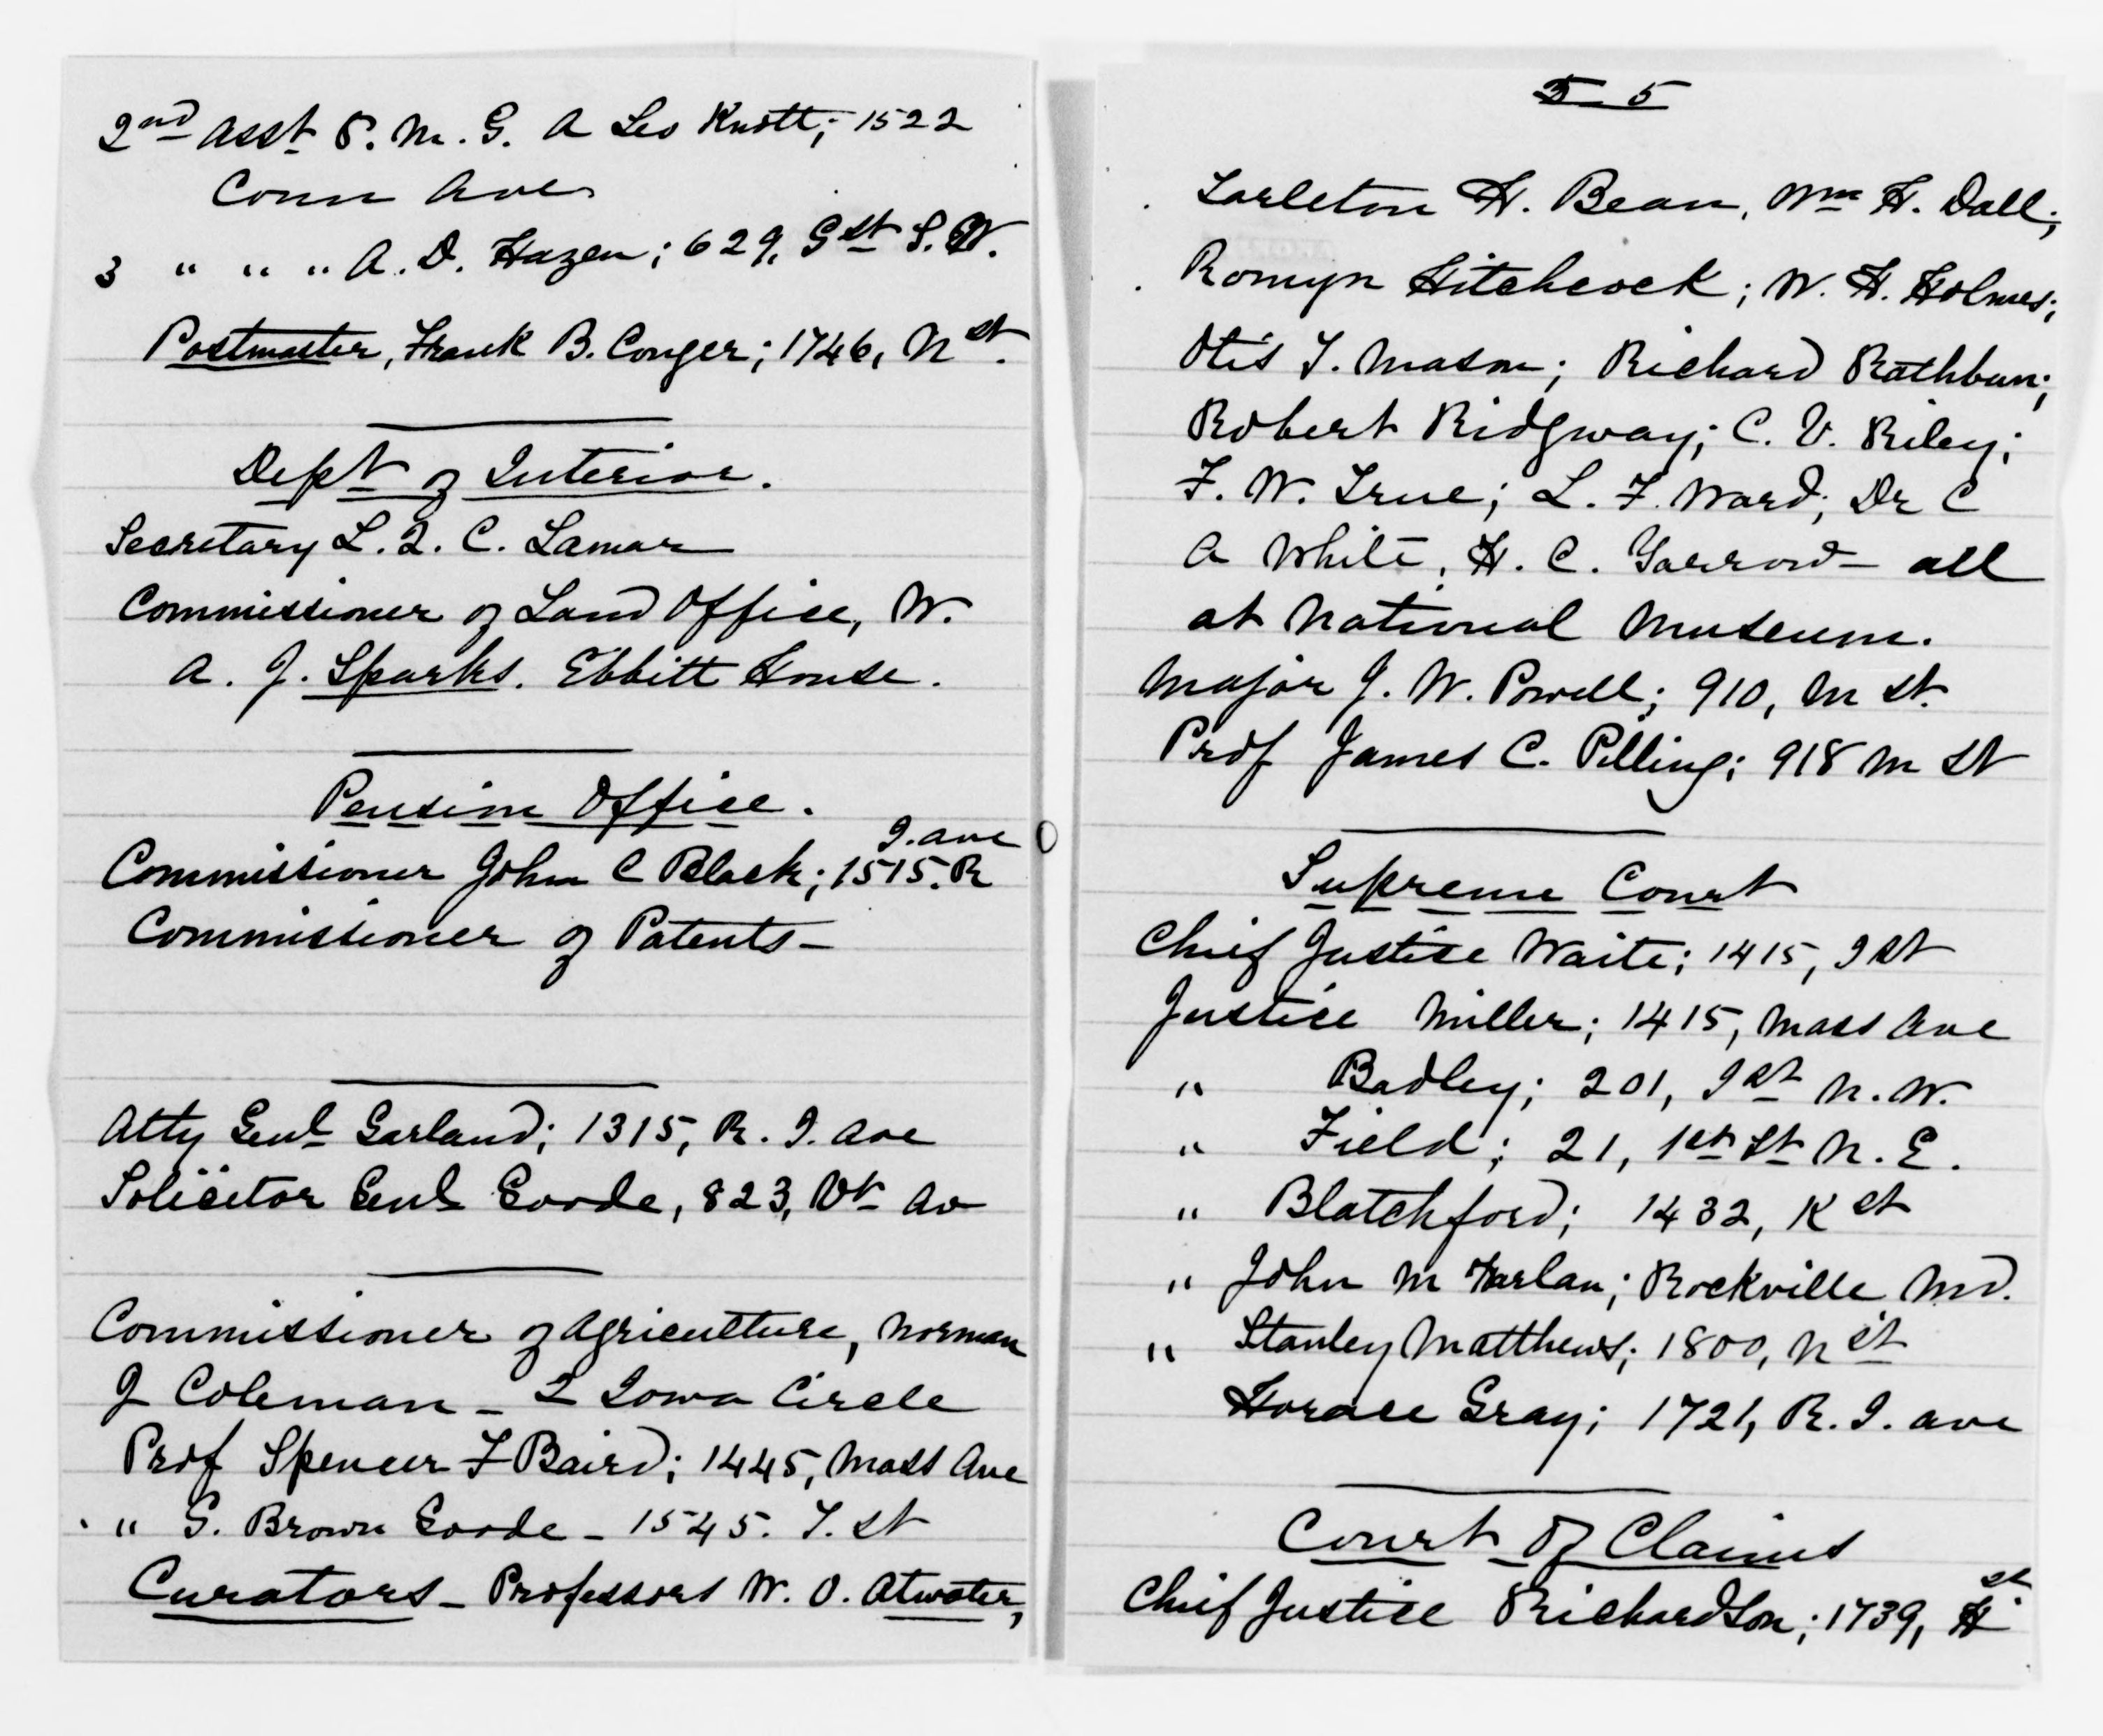 2nd Asst P. M. G. A Leo Knott; 1522
Conn Ave
3 " " " A. D. Hazen; 629, G st S. W.
Postmaster, Frank B. Conger; 1746, N st.
Dept of Interior.
Secretary L. Q. C. Lamar
Commissioner of Land Office, W.
A. J. Sparks. Ebbitt House.
Pension Office.
I. ave
Commissioner John C Black; 1515. R
Commissioner of Patents –
Atty Genl Garland; 1315, R. I. ave
Solicitor Genl Goode, 823, Vt Av
Commissioner of Agriculture, Norman
J Coleman – 2 Iowa Circle
Prof Spencer F Baird; 1445, Mass Ave
" G. Brown Goode – 1545. T. st
Curators – Professors W. O. Atwater,
5 5
Tarleton H. Bean, Wm H. Dall;
Romyn Hitchcock; W. H. Holmes;
Otis T. Mason; Richard Rathbun;
Robert Ridgway; C. V. Riley;
F. W. True; L. F. Ward; Dr C
A White, H. C. Yarrow – all
at National Museum.
Major J. W. Powell; 910, M st.
Prof James C. Pilling; 918 M st
Supreme Court
Chief Justice Waite; 1415, I st
Justice Miller; 1415, Mass Ave
" Badley; 201, I st N. W.
" Field; 21, 1st St N. E.
" Blatchford; 1432, K st
" John M Harlan; Rockville Md.
" Stanley Matthews; 1800, N st
Horace Gray; 1721, R. I. ave
Court of Claims
Chief Justice Richardson; 1739, H st.